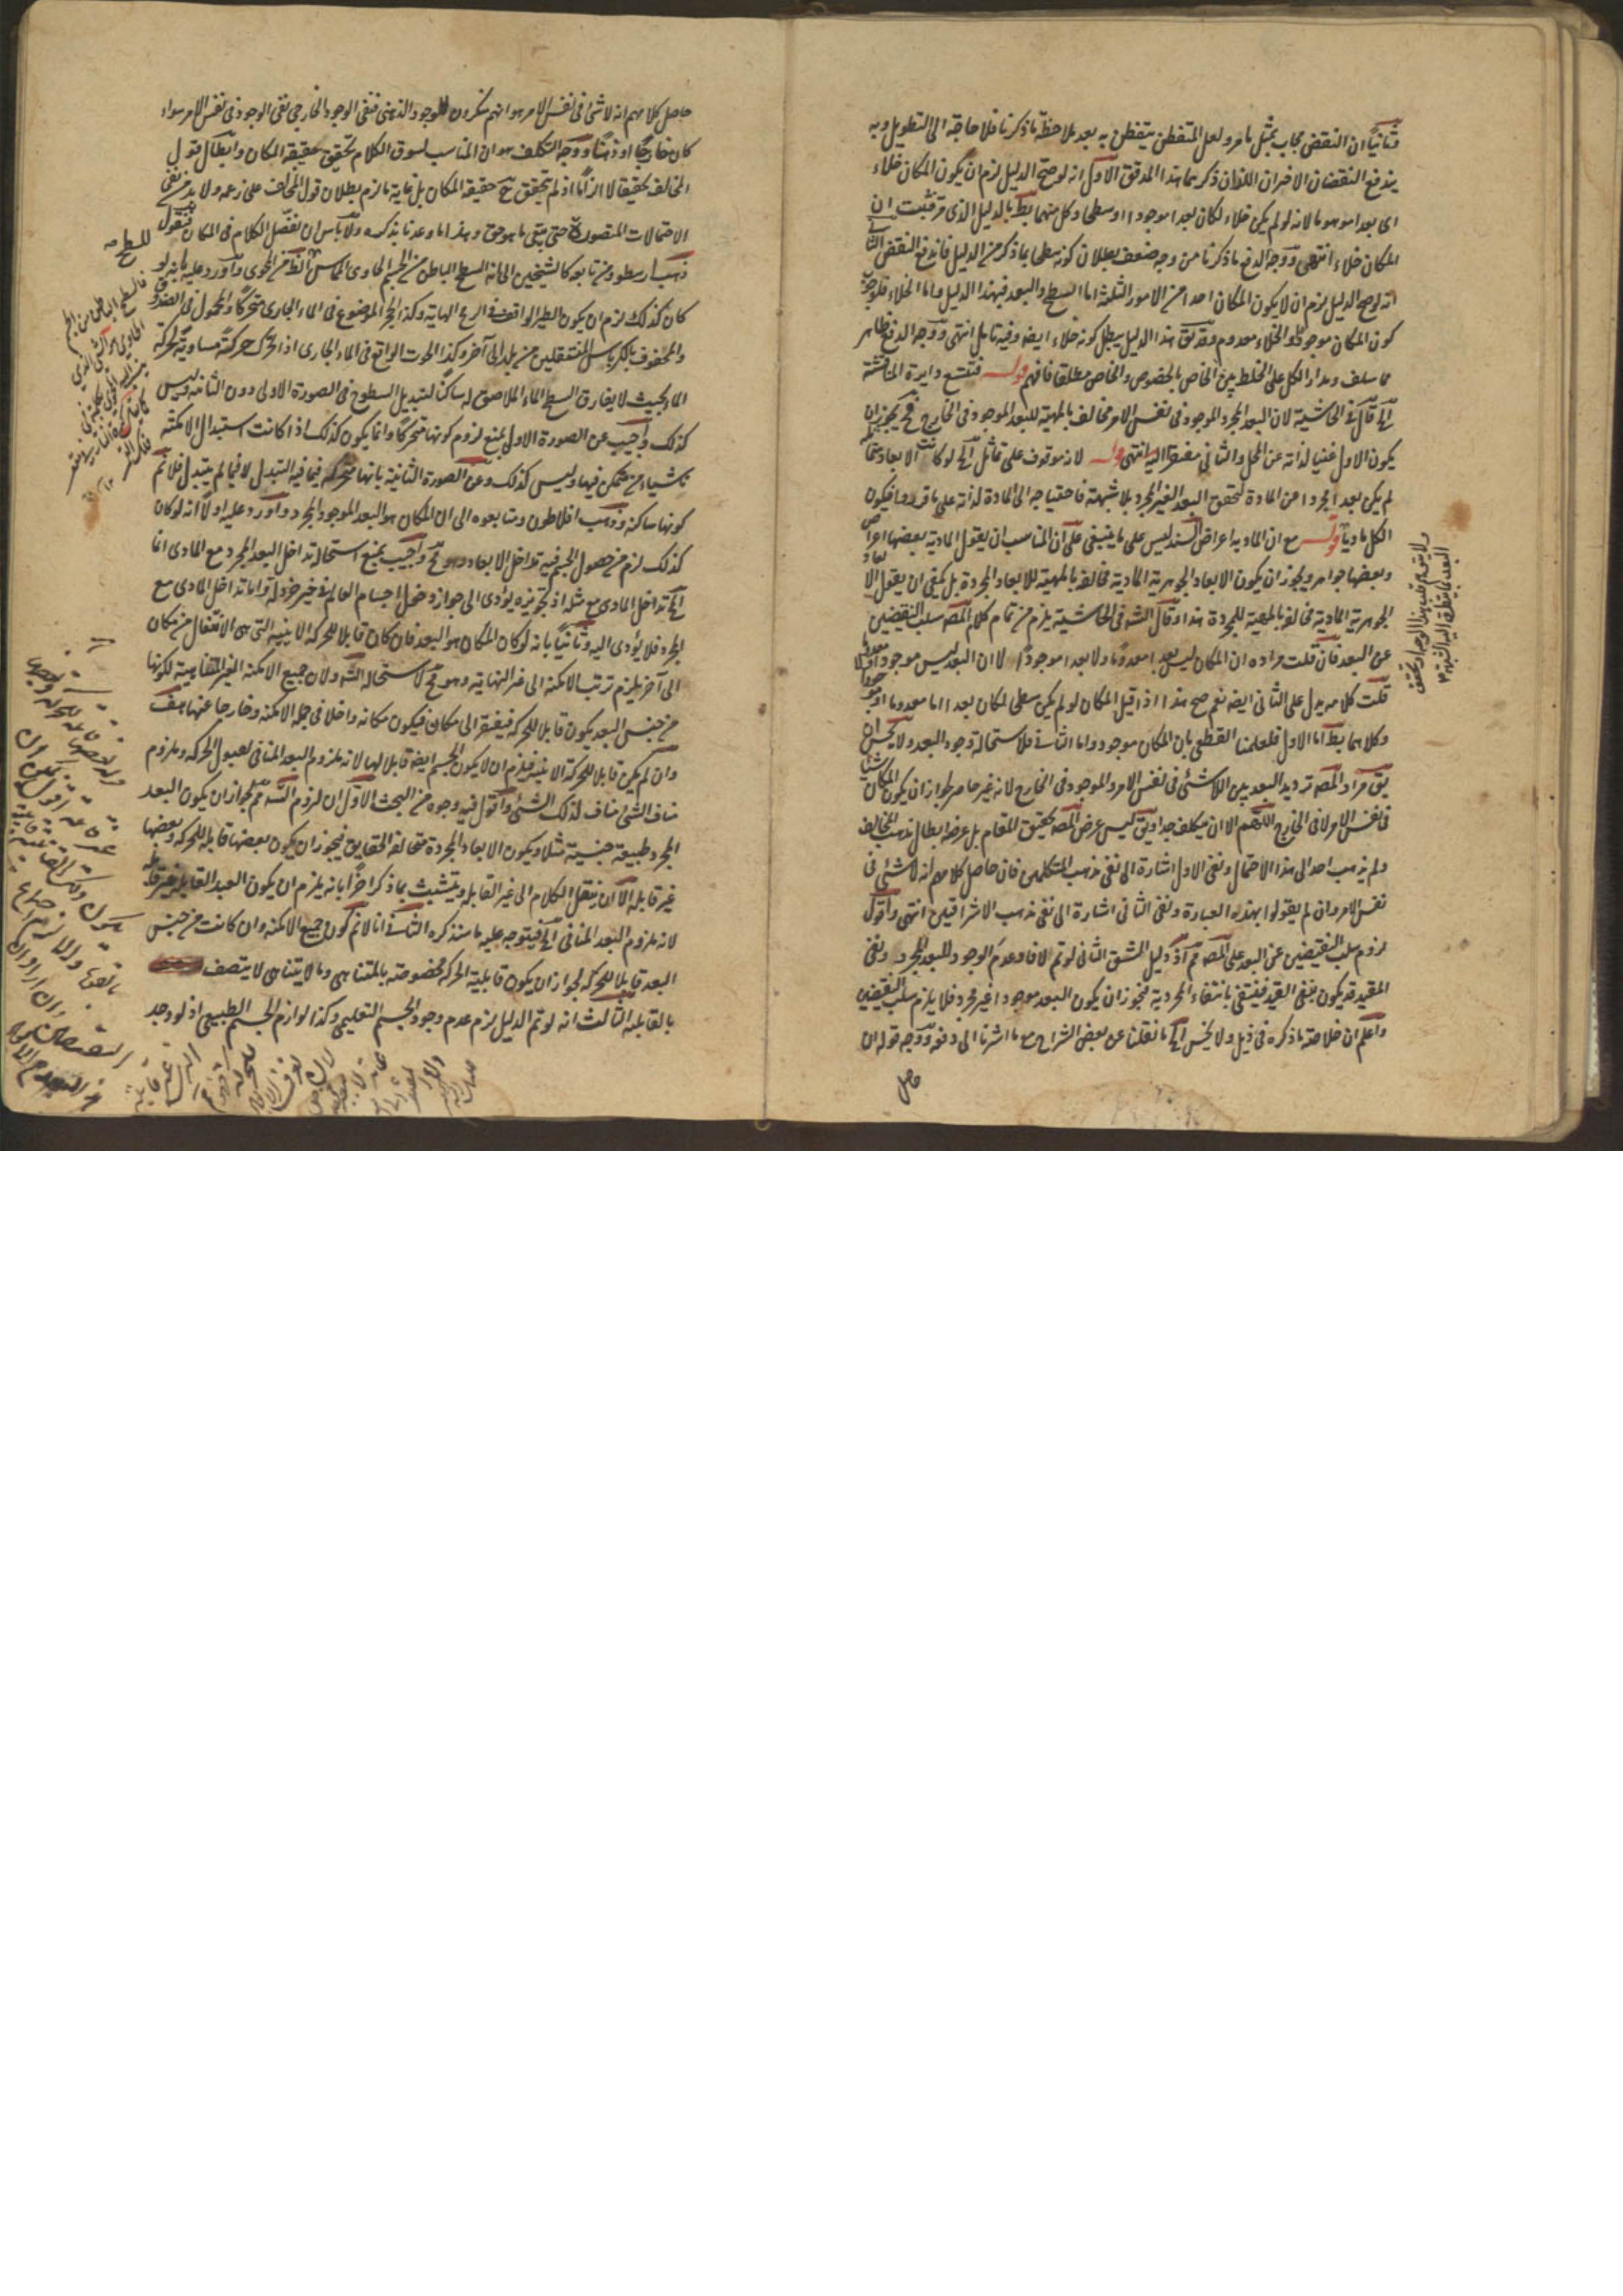 وثانيا ان النقض يجاب بمثل ما مر ولعل المتفطن يتفطن به بعد ملاحظة ما ذكرنا فلا حاجة الى التطويل وبه
يندفع النقضان الاخران اللذان ذكرهما هذا المدقق الاول انه لو صح الدليل لزم ان يكون المكان خلاء
اى بعدا موهوما لانه لو لم يكن خلاء لكان بعدا موجودا او سطحا وكل منهما بط بالدليل الذى مر فثبت ان
المكان خلاء انتهى ووجه الدفع ما ذكرنا من وجه ضعف بطلان كونه سطحا بما ذكر من الدليل فاندفع النقض الثانى
انه لو صح الدليل لزم ان لا يكون المكان احدا من الامور الثلثة اما السطح والبعد فبهذا الدليل واما الخلاء فلوجوب
كون المكان موجودا والخلاء معدوم وقد يق هذا الدليل يبطل كونه خلاء ايضه وفيه تامل انتهى ووجه الدفع ظاهر
مما سلف ومدار الكل على الخلط بين الخاص بالخصوص والخاص مطلقا فافهم قوله فتتسع دايرة المناقشة
الخ قال فى الحاشية لان البعد المجرد الموجود فى نفس الامر مخالف بالمهية للبعد الموجود فى الخارج فح يجوز ان
يكون الاول غنيا لذاته عن المحل والثانى مفتقرا اليه انتهى قوله لانه موقوف على تماثل الخ لو كانت الابعاد متماثلة
لم يكن بعد مجردا عن المادة لتحقق البعد الغير المجرد بلا شبهة فاحتياجه الى المادة لذاته على ما قرروا فيكون
الكل ماديا قوله مع ان المادية اعراض السند ليس على ما ينبغى على ان المناسب ان يقول المادية بعضها اعراض
وبعضها جواهر ويجوز ان يكون الابعاد الجوهرية المادية مخالفة بالمهية للابعاد المجردة بل يكفى ان يقول الابعاد
الجوهرية المادية مخالفة بالمهية للمجردة هذا وقال الشه فى الحاشية يلزم من تمام كلام المصه سلب النقيضين
عن البعد فان قلت مراده ان المكان ليس بعدا معدوما ولا بعدا موجودا لا ان البعد ليس موجودا ولا معدوما
قلت كلامه يدل على الثانى ايضه نعم صح هذا اذا قيل المكان لو لم يكن سطحا لكان بعدا اما معدوما او موجودا
وكلاهما بط اما الاول فلعلمنا القطعى بان المكان موجود واما الثانى فلاستحالة وجود البعد ولا يحسن ان
يق مراد المصه ترديد البعد بين اللاشئ فى نفس الامر والموجود فى الخارج لانه غير حاصر لجواز ان يكون المكان شيئا
فى نفس الامر لا فى الخارج اللهم الا ان يتكلف جدا ويق ليس غرض المصه تحقيق المقام بل غرضه ابطال مذهب المخالف
ولم يذهب احد الى هذا الاحتمال ونفى الاول اشارة الى نفى مذهب المتكلمين فان حاصل كلامهم انه لا شئ فى
نفس الامر وان لم يقولوا بهذه العبارة ونفى الثانى اشارة الى نفى مذهب الاشراقيين انتهى واقول
لزوم سلب النقيضين عن البعد على المصه مم اذ دليل الشق الثانى لو تم لافاد عدم الوجود للبعد المجرد ونفى
المقيد قد يكون بنفى القيد فينتفى بانتفاء المجردية فيجوز ان يكون البعد موجودا غير مجرد فلا يلزم سلب النقيضين
واعلم ان خلاصة ما ذكره فى ذيل ولا يحسن الخ ما نقلنا عن بعض الشراح مع ما اشرنا الى دفعه ووجه قوله ان
حاصل
حاصل كلامهم انه لا شئ فى نفس الامر هو انهم منكرون للوجود الذهنى فنفى الوجود الخارجى نفى الوجود فى نفس الامر سواء
كان خارجيا او ذهنيا ووجه التكلف هو ان المناسب لسوق الكلام تحقيق حقيقة المكان وابطال قول
المخالف تحقيقا لا الزاما اذ لم يتحقق ح حقيقة المكان بل غاية ما لزم بطلان قول المخالف على زعمه ولا بد من نفى
الاحتمالات المتصورة حتى يبقى ما هو حق وهذا ما وعدنا بذكره ولا باس ان نفصل الكلام فى المكان فنقول
ذهب ارسطو ومن تابعه كالشيخين الى انه السطح الباطن من الجسم الحاوى المماس للسطح الظ من المحوى واورد عليه بانه لو
كان كذلك لزم ان يكون الطير الواقف فى الريح الهابة وكذا الحجر الموضوع فى الماء الجارى متحركا والمحمول فى الصندوق
والمحفوف بالكرباس المنتقلين من بلد الى آخر وكذا الحوت الواقع فى الماء الجارى اذا تحرك حركة مساوية لحركة
الماء بحيث لا يفارق السطح الماء الملاصق له ساكنا لتبديل السطوح فى الصورة الاولى دون الثانية وليس
كذلك واجيب عن الصورة الاولى بمنع لزوم كونها متحركا وانما يكون كذلك اذا كانت استبدال الامكنة
ناشيا من متمكن فيها وليس كذلك وعن الصورة الثانية بانها متحركة فيما فيه التبدل لا فيما لم يتبدل فلا تم
كونها ساكنة وذهب افلاطون ومتابعوه الى ان المكان هو البعد الموجود المجرد واورد عليه اولا انه لو كان
كذلك لزم من حصول الجسم فيه تداخل الابعاد وهو مح واجيب بمنع استحالة تداخل البعد المجرد مع المادى انما
المح تداخل المادى مع مثله اذ تجويزه يؤدى الى جواز دخول اجسام العالم فى حيز خردلة واما تداخل المادى مع
المجرد فلا يؤدى اليه وثانيا بانه لو كان المكان هو البعد فان كان قابلا للحركة الاينية التى هى الانتقال من مكان
الى آخر يلزم ترتب الامكنة الى غير النهاية وهو مح لاستحالة التسه ولان جميع الامكنة الغير المتناهية لكونها
من جنس البعد يكون قابلا للحركة فيفتقر الى مكان فيكون مكانه داخلا فى جملة الامكنة وخارجا عنها هف
وان لم يكن قابلا للحركة الاينية فيلزم ان لا يكون الجسم ايضه قابلا لها لانه ملزوم البعد المنافى لقبول الحركة وملزوم
مناف الشئ مناف لذلك الشئ واقول فيه وجوه من البحث الاول ان لزوم التسه مم لجواز ان يكون البعد
المجرد طبيعة جنسية مثلا ويكون الابعاد المجردة متخالفة الحقايق فيجوز ان يكون بعضها قابلة للحركة وبعضها
غير قابلة الا ان ينتقل الكلام الى غير القابلة ويتشبث بما ذكر اخرا بانه يلزم ان يكون البعد القابل غير قابل
لانه ملزوم البعد المنافى الخ فيتوجه عليه ما سنذكره الثانى انا لا نم كون جميع الامكنة وان كانت من جنس
البعد قابلا للحركة لجواز ان يكون قابلية الحركة مخصوصة بالمتناهى وما لا يتناهى لا يتصف
بالقابلية الثالث انه لو تم الدليل لزم عدم وجود الجسم التعليمى وكذا لوازم الجسم الطبيعى اذ لو وجد